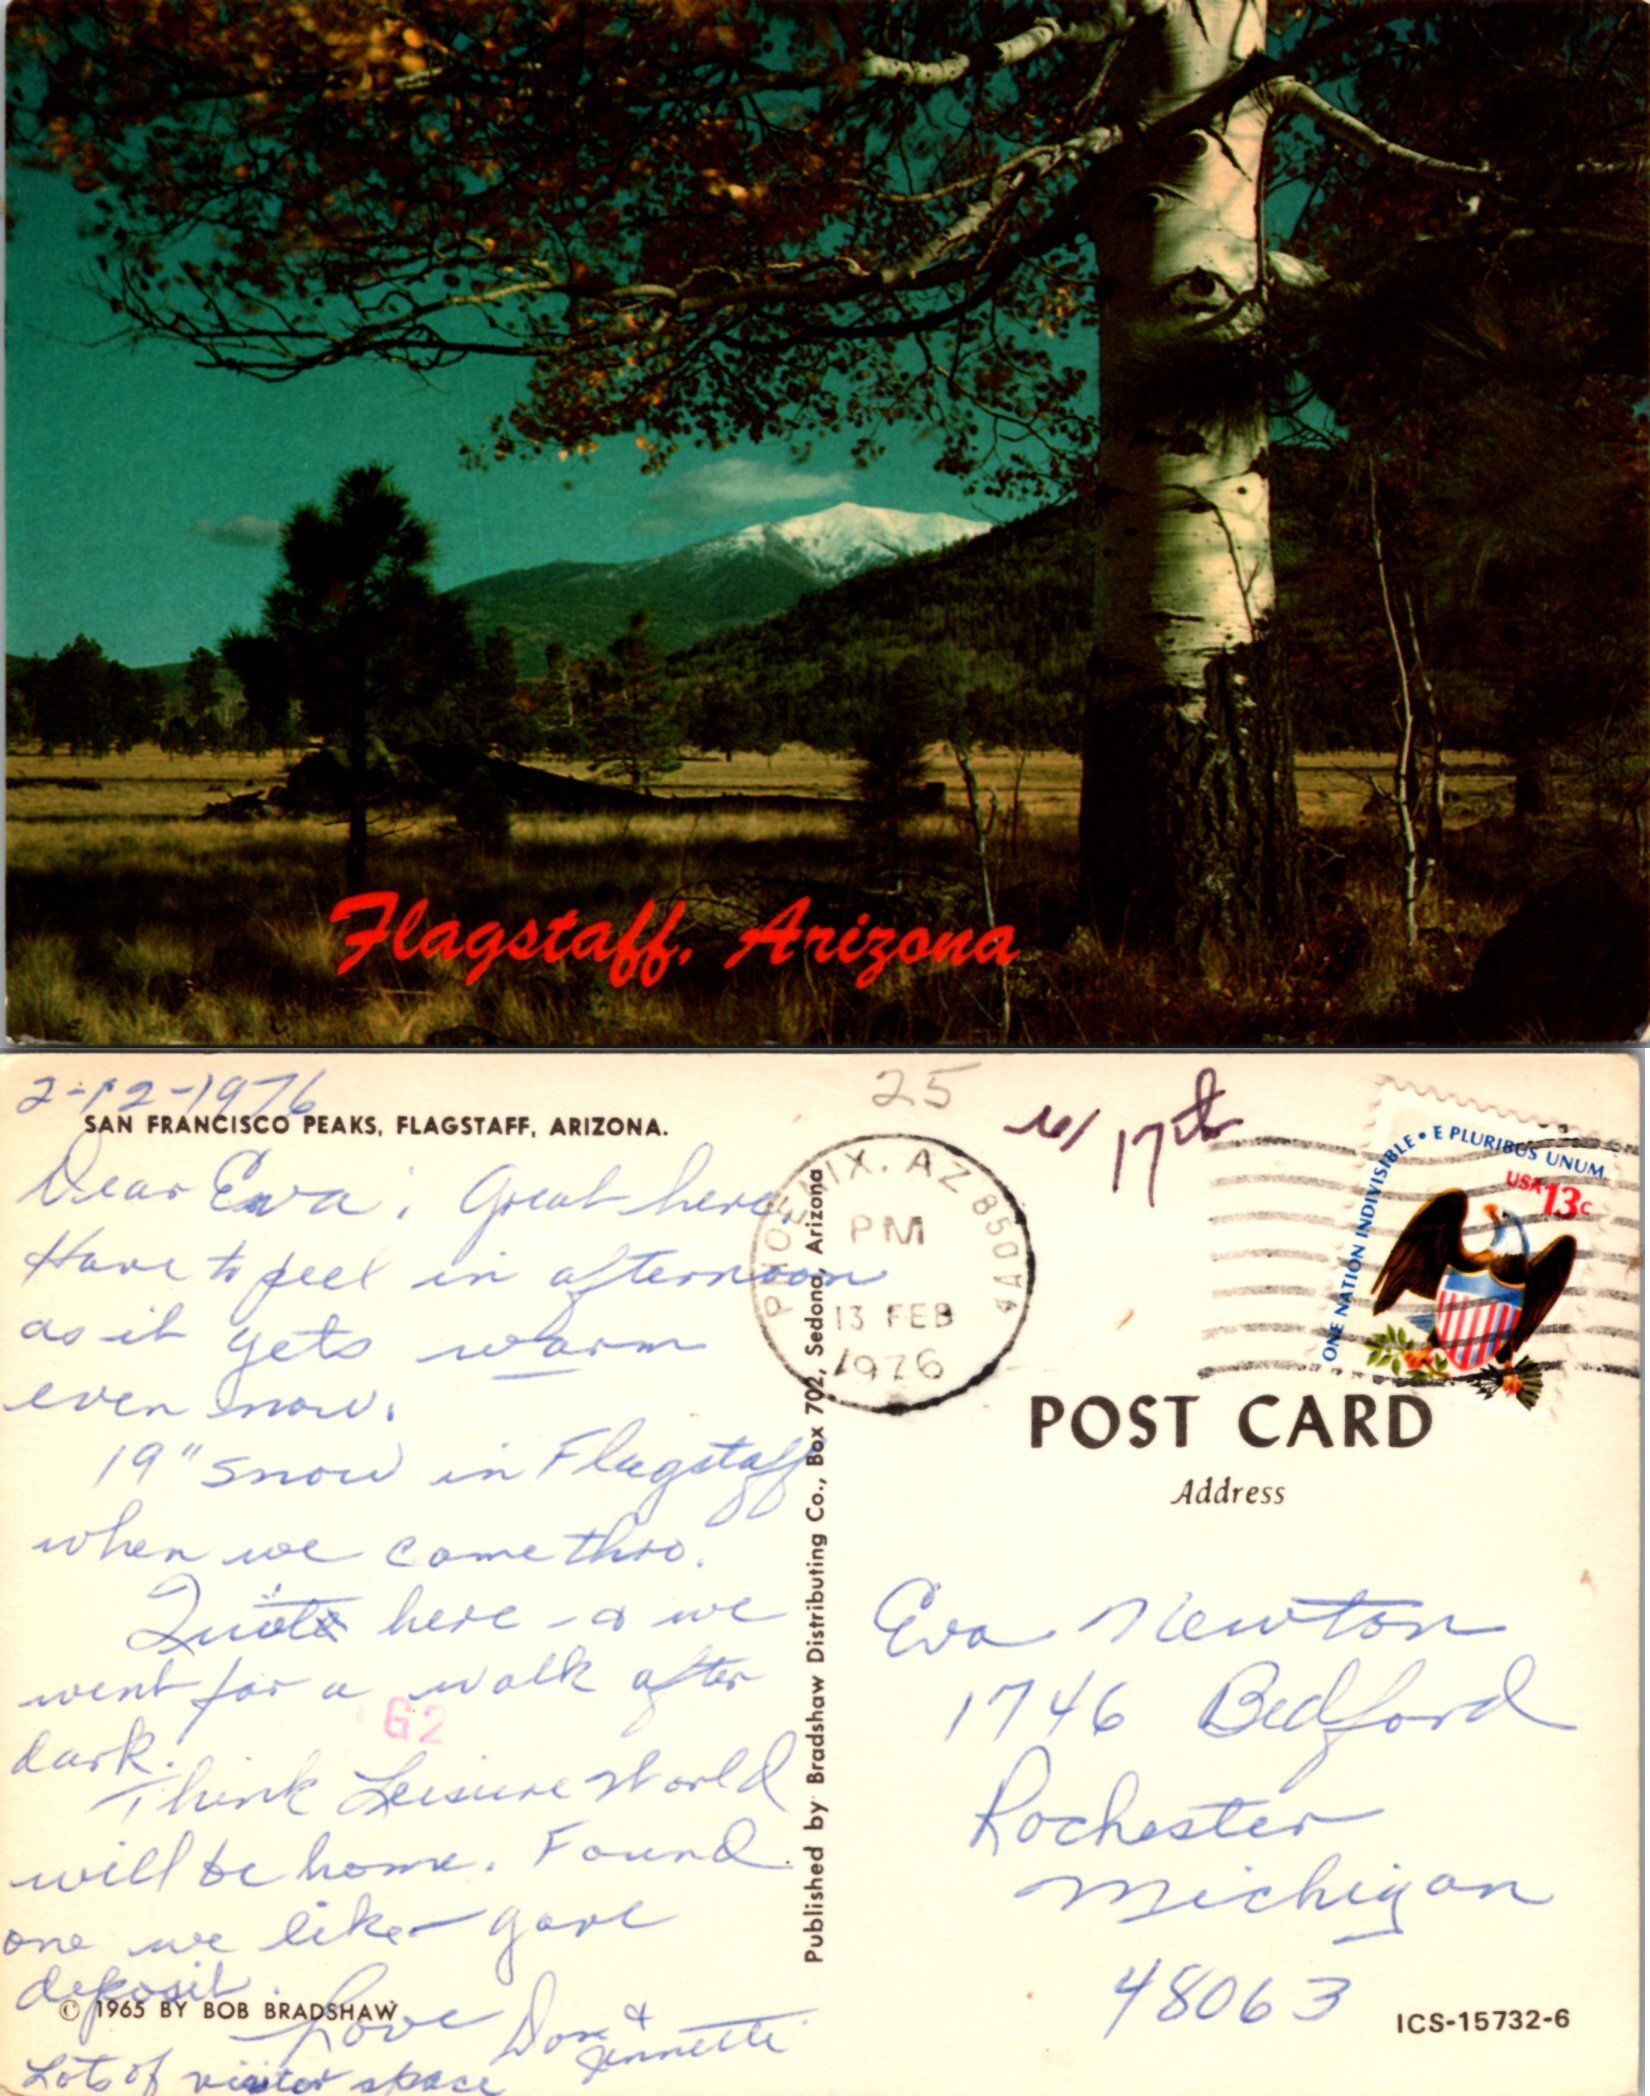 Flagstaff, Arizona
2-12-1976
SAN FRANCISCO PEAKS, FLAGSTAFF, ARIZONA.
Dear Eva; Great here.
Have to peel in afternoon
as it gets warm
even snow.
19" snow in Flagstaff
when we came thro.
Quiet here - & we
went for a walk after
dark.
Think Leisure World
will be home. Found
one we like - gave
deposit.
© 1965 BY BOB BRADSHAW
Love Don &
Jennette
Lots of visitor space
G2
Published by Bradshaw Distributing Co., Box 702, Sedona, Arizona
25
w/ 17th
PHOENIX, AZ 850
PM
13 FEB
1976
ONE NATION INDIVISIBLE • E PLURIBUS UNUM
USA 13c
POST CARD
Address
Eva Newton
1746 Bedford
Rochester
Michigan
48063
ICS-15732-6